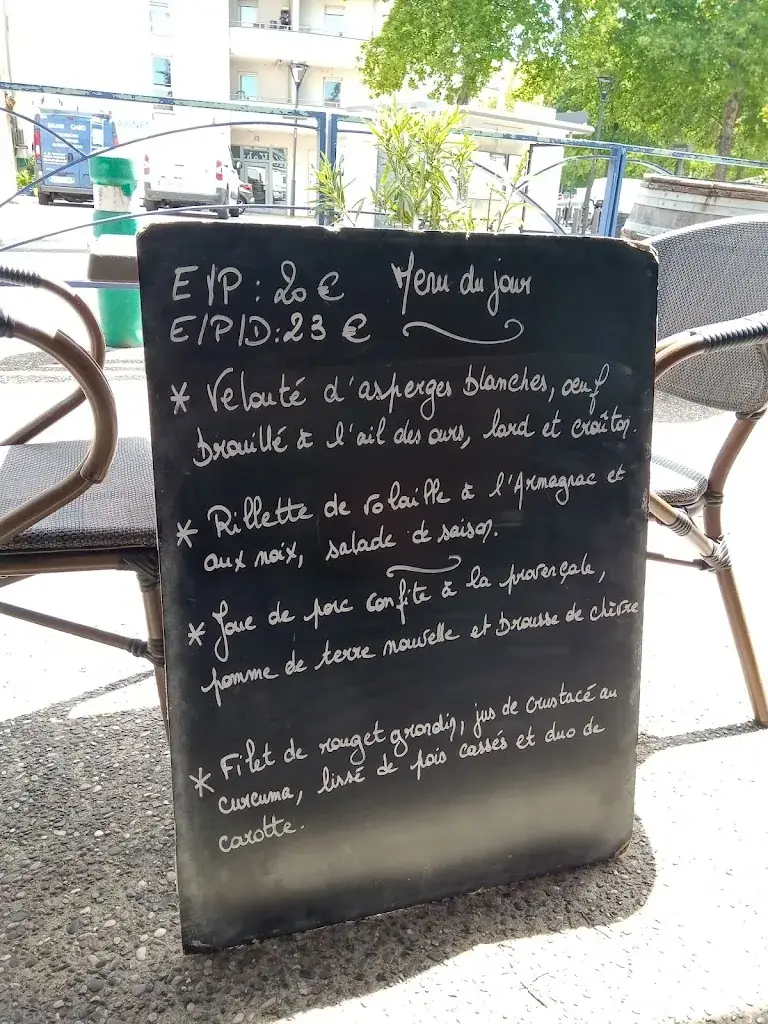 E/P : 20 € Menu du jour
E/P/D : 23 €
* Velouté d'asperges blanches, œuf
brouillé à l'ail des ours, lard et croûton.
* Rillette de volaille à l'Armagnac et
aux noix, salade de saison.
* Joue de porc confite à la provençale,
pomme de terre nouvelle et brousse de chèvre
* Filet de rouget grondin, jus de crustacé au
curcuma, lissé de pois cassés et duo de
carotte.